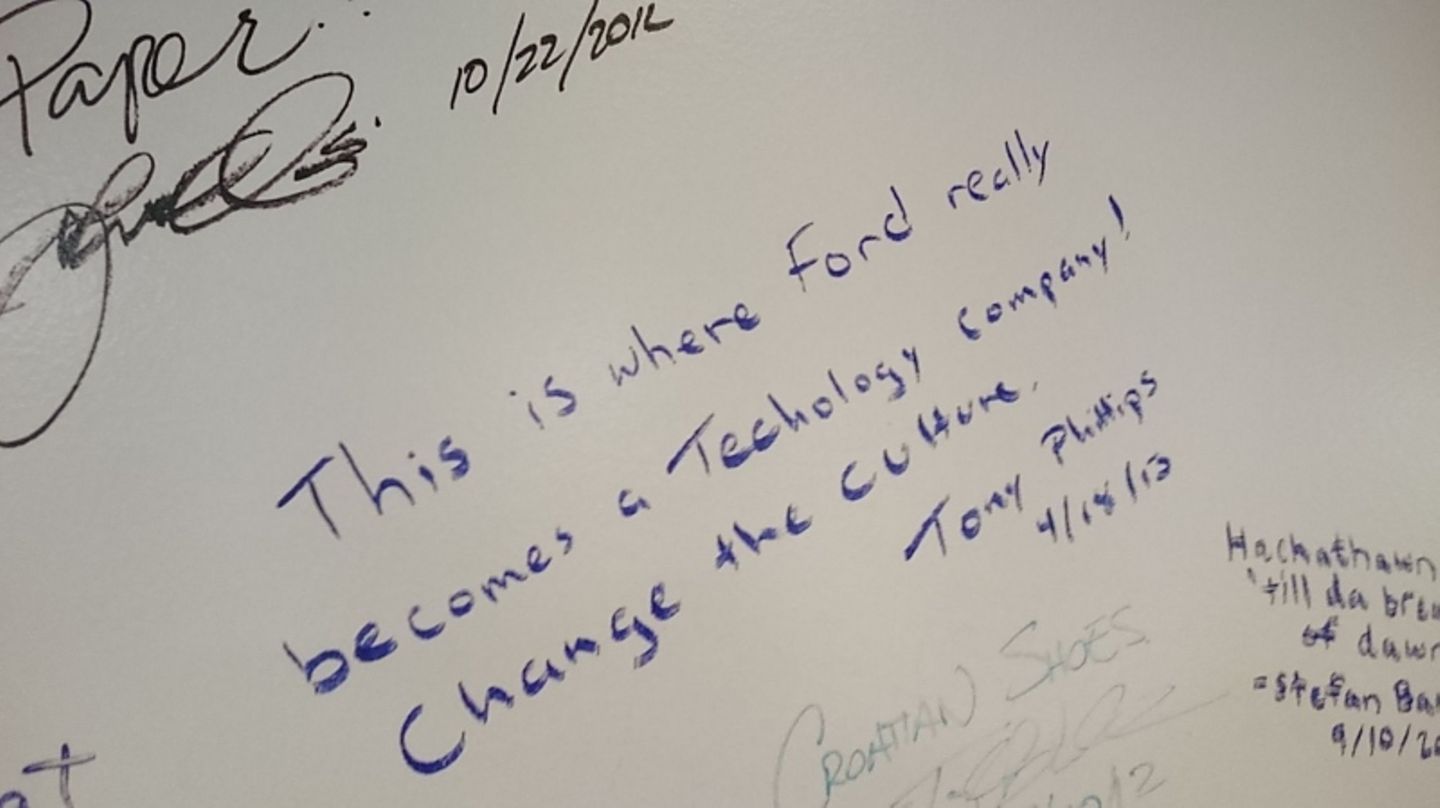 Paper..
10/22/2012
This is where Ford really
becomes a Techology company!
Change the culture.
Tony Phillips
4/18/13
Hackathawn
'till da
of dawn
=Stefan
9/10/20
CROATIAN SHOES